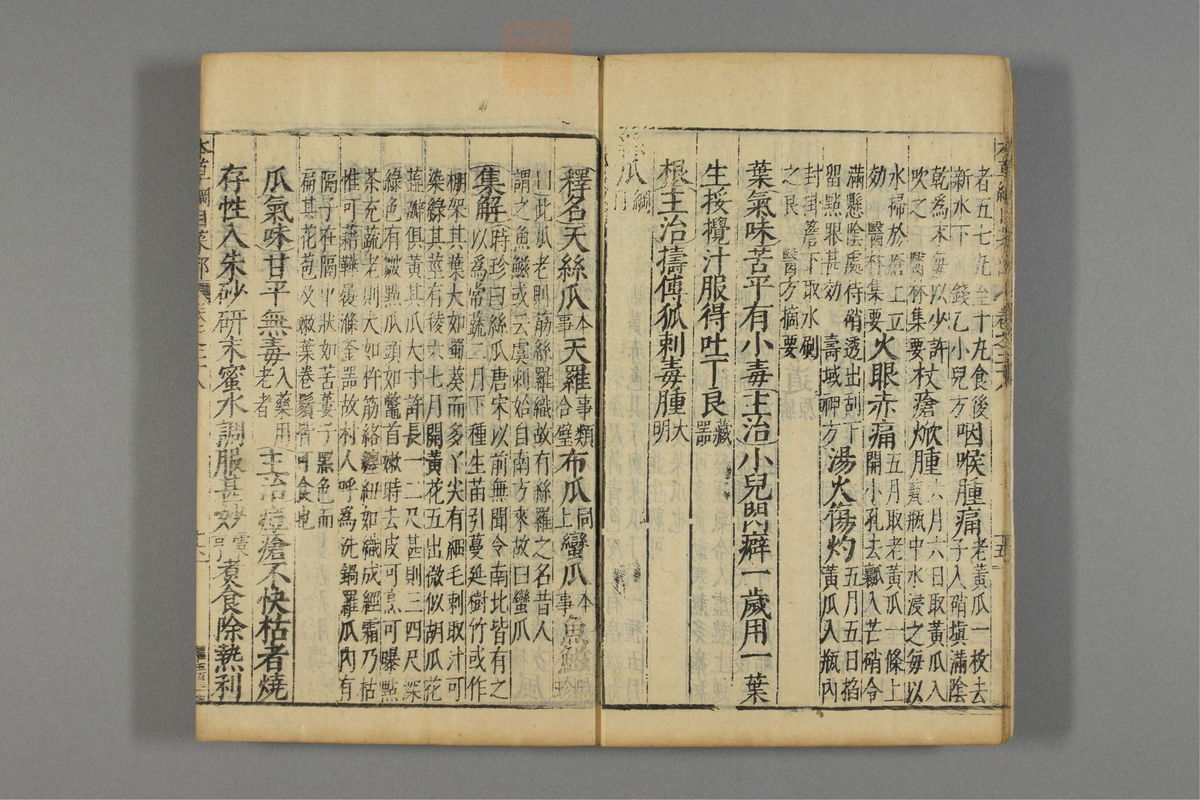 者五七九至十九食後咽喉腫痛老黃瓜一枚去
新水下一錢乙小兒方 子入硝填滿陰
乾為末每以少許 杖瘡焮腫六月六日取黃瓜入
吹之 醫林集要 甆瓶中水浸之每以
水掃於瘡上立 火眼赤痛五月取老黃瓜一條上
効 醫林集要 開小孔去瓤入芒硝令
滿懸陰處待硝透出刮下 湯火傷灼五月五日掐
畱點眼甚効 壽域神方 黃瓜入瓶內
封掛簷下取水刷
之良 醫方摘要
葉氣味苦平有小毒主治小兒閃癖一歲用一葉
生挼攪汁服得吐下良藏器
根主治擣傅狐刺毒腫大明
絲瓜綱目
釋名天絲瓜本事天羅事類合璧布瓜同上蠻瓜本事魚鰦時珍
曰此瓜老則筋絲羅織故有絲羅之名昔人
謂之魚鰦或云虞刺始自南方來故曰蠻瓜
集解時珍曰絲瓜唐宋以前無聞今南北皆有之
以為常蔬二月下種生苗引蔓延樹竹或作
棚架其葉大如蜀葵而多丫尖有細毛刺取汁可
染綠其莖有稜六七月開黃花五出微似胡瓜花
蕊瓣俱黃其瓜大寸許長一二尺甚則三四尺深
綠色有皺點瓜頭如鱉首嫩時去皮可烹可曝點
茶充蔬老則大如杵筋絡纏紐如織成經霜乃枯
惟可藉鞾履滌釜器故村人呼為洗鍋羅瓜內有
隔子在隔中狀如苦蔞子黑色而
扁其花苞及嫩葉卷鬚皆可食也
瓜氣味甘平無毒入藥用老者主治痘瘡不快枯者燒
存性入朱砂研末蜜水調服甚妙震亨煮食除熱利